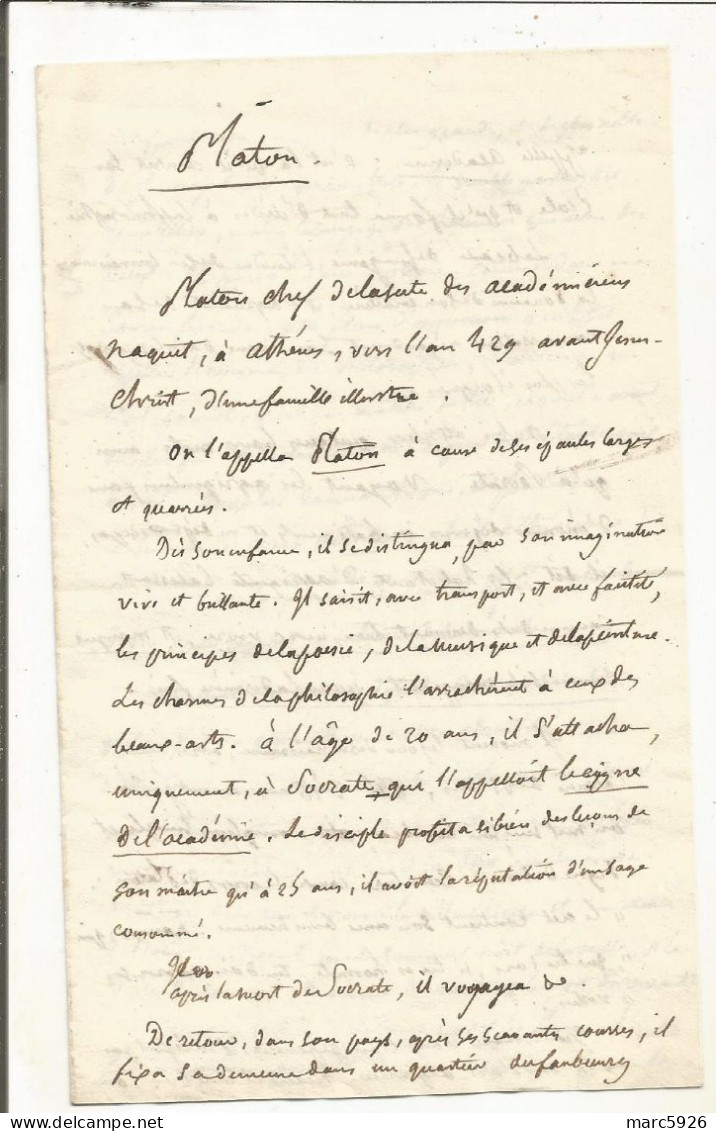 Platon.
Platon chef de la secte des académiciens
naquit, à athénes, vers l'an 429 avant Jesus-
Christ, d'une famille illustre.
On l'appella Platon à cause de ses épaules larges
et quarrées.
Dès son enfance, il se distingua, par son imagination
vive et brillante. Il saisit, avec transport, et avec facilité,
les principes de la poesie, de la musique et de la peinture.
Les charmes de la philosophie l'arrachèrent à ceux des
beaux-arts. à l'âge de 20 ans, il s'attacha,
uniquement, à Socrate + qui l'appelloit le cygne
de l'académie. Le disciple profita si bien des leçons de
son maître qu'à 25 ans, il avoit la réputation d'un sage
consommé.
après la mort de Socrate, il voyagea
De retour, dans son pays, après ses scavantes courses, il
fixa sa demeure dans un quartier du fauxbourg
marc5926